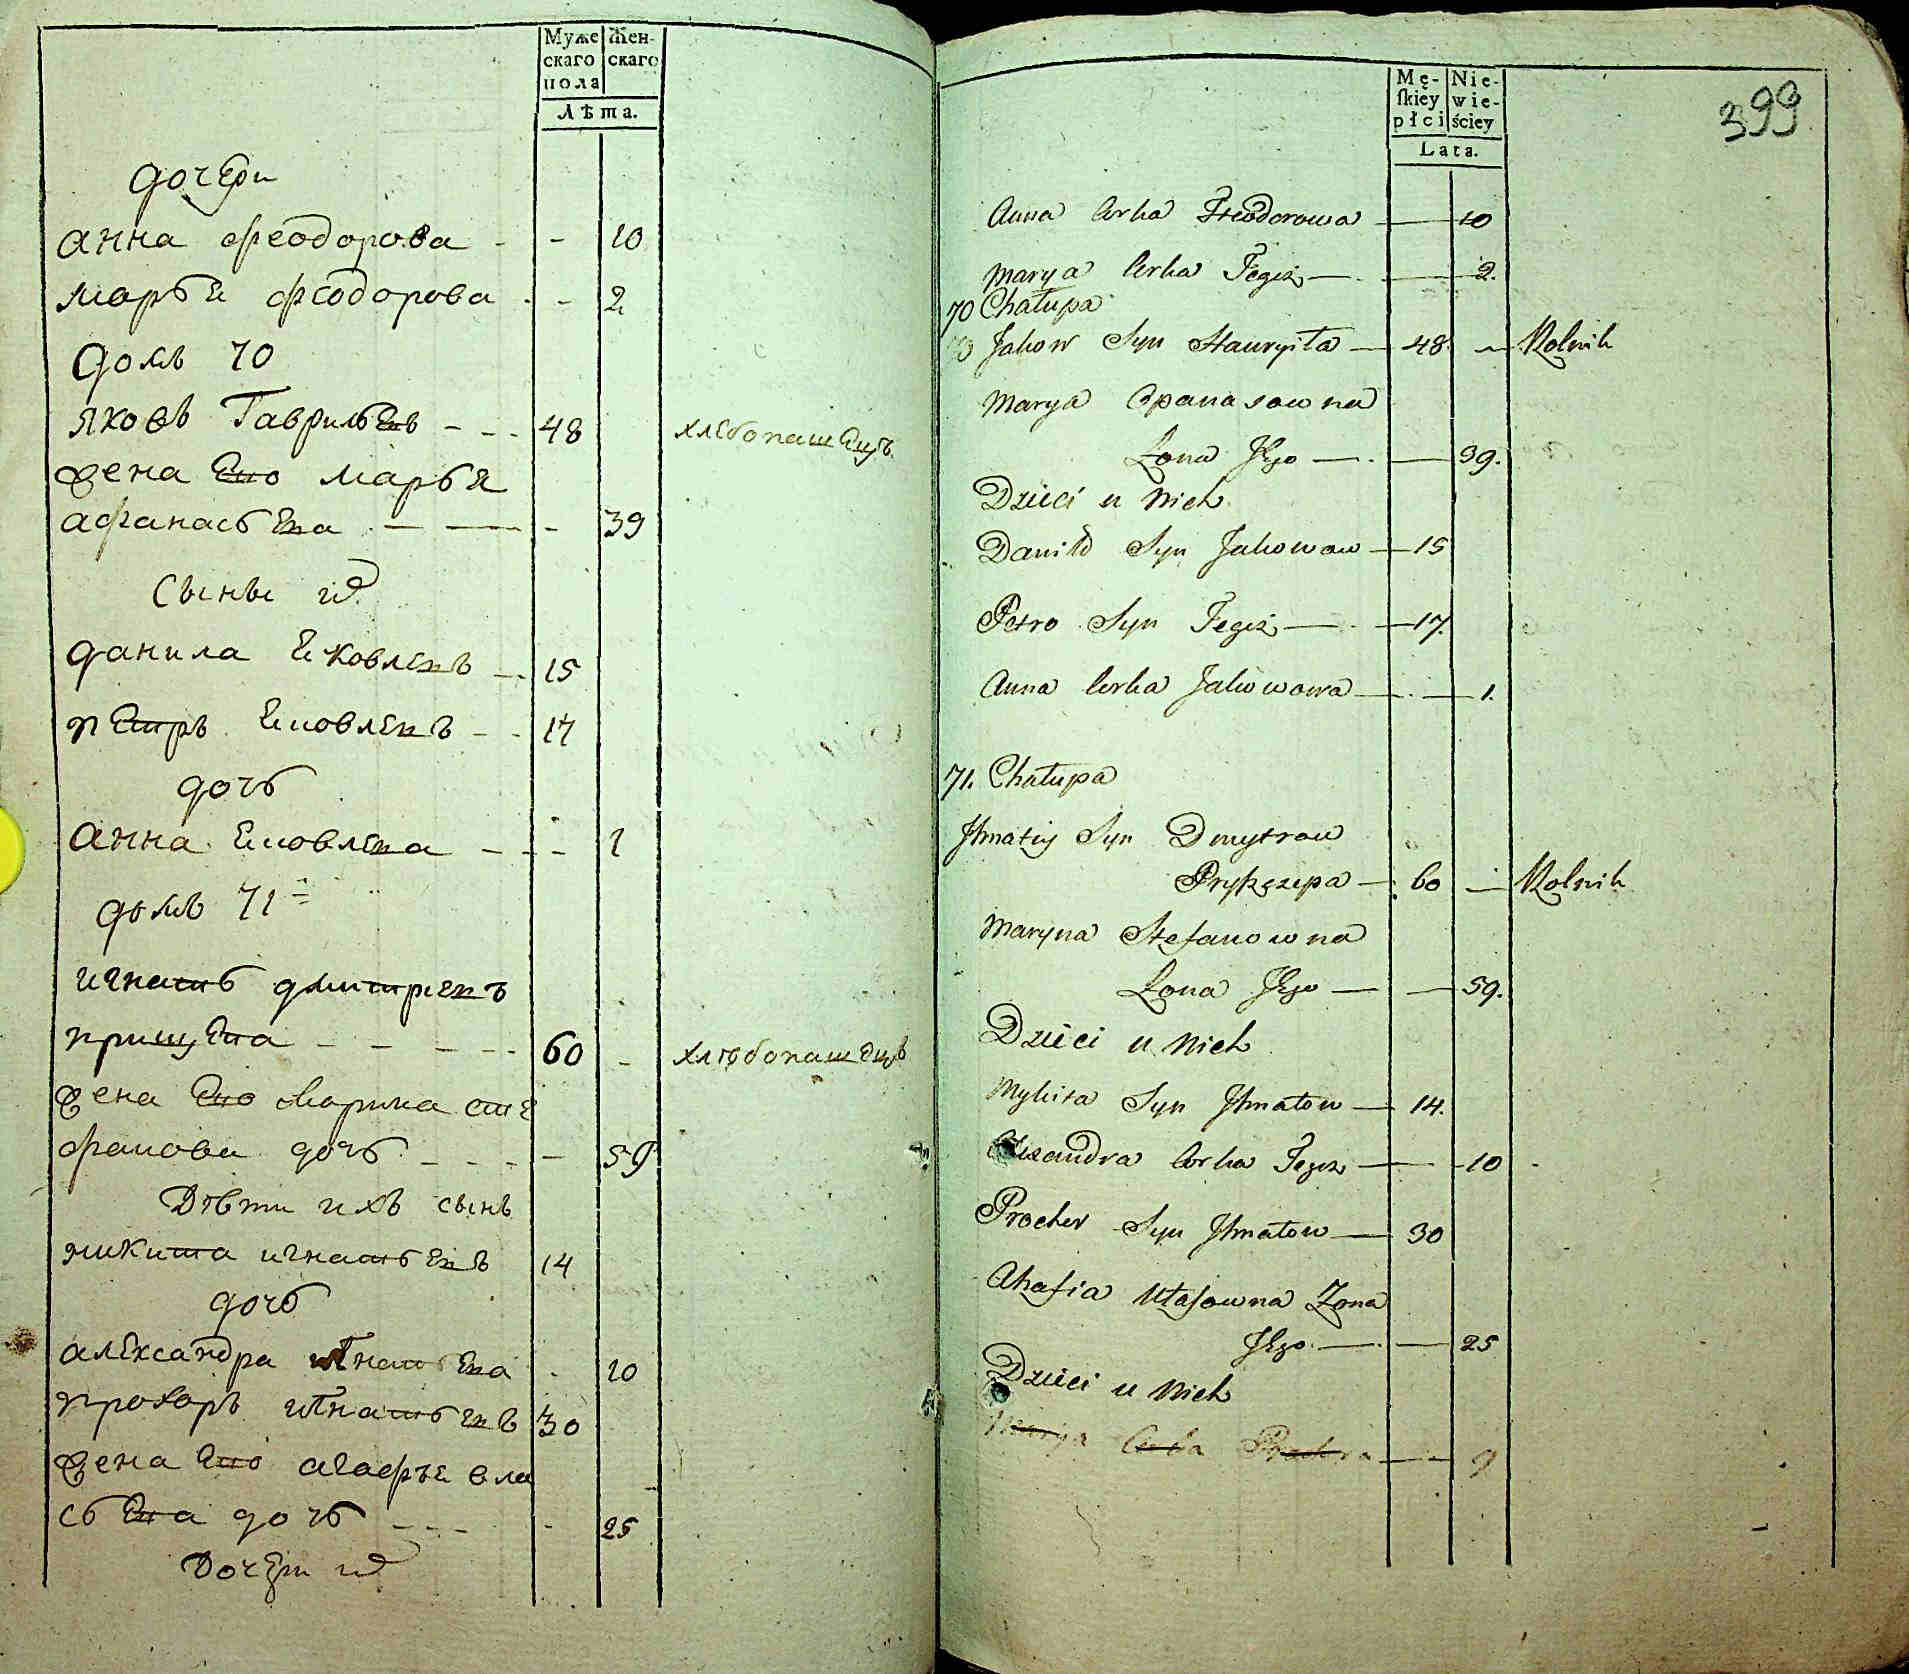 Муже
скаго
пола
Жен-
скаго
Лѣта.
дочери
анна феодорова - - 10
марья феодорова - - 2
домъ 70
яковъ Гавриль - - - 48 хлебопашецъ
жена Его марья
афанасьева - - - 39
сыны их
данила Яковлевъ - - 15
петръ Яковлевъ - - 17
дочь
анна Яковлева - - - 1
домъ 71
игнатъ дмитриевъ
прищепа - - - - - 60 - хлѣбопашецъ
жена Его Марина сте
фанова дочь - - - - 59
Дѣти ихъ сынъ
никита игнатьевъ 14
дочь
александра игнатьева - 10
прохоръ игнатьевъ 30
жена Его агафья вла
сьева дочь - - - - 25
Дочери их
399
Mę-
skiey
płci
Nie-
wie-
ściey
Lata.
Anna Corka Fteodorowa — — 10
Marya Corka Tegoż — — 2.
70 Chałupa
70 Jakow Syn Hauryiła — 48. — Rolnik
Marya Opanasowna
Żona Jego — — 39.
Dzieci u Nich
Daniło Syn Jakowow — 15
Petro Syn Tegoż — 17.
Anna Corka Jakowowa — — 1.
71. Chałupa
Jhnatiy Syn Dmytrow
Pryszczepa — 60 — Rolnik
Maryna Stefanowna
Żona Jego — — 59.
Dzieci u Nich
Mykita Syn Jhnatow — 14.
Olexandra Corka Tegoż — — 10
Prochor Syn Jhnatow — 30
Ahafia Ułasowna Żona
Jego — — 25
Dzieci u Nich
Marya Corka Prochora — — 9